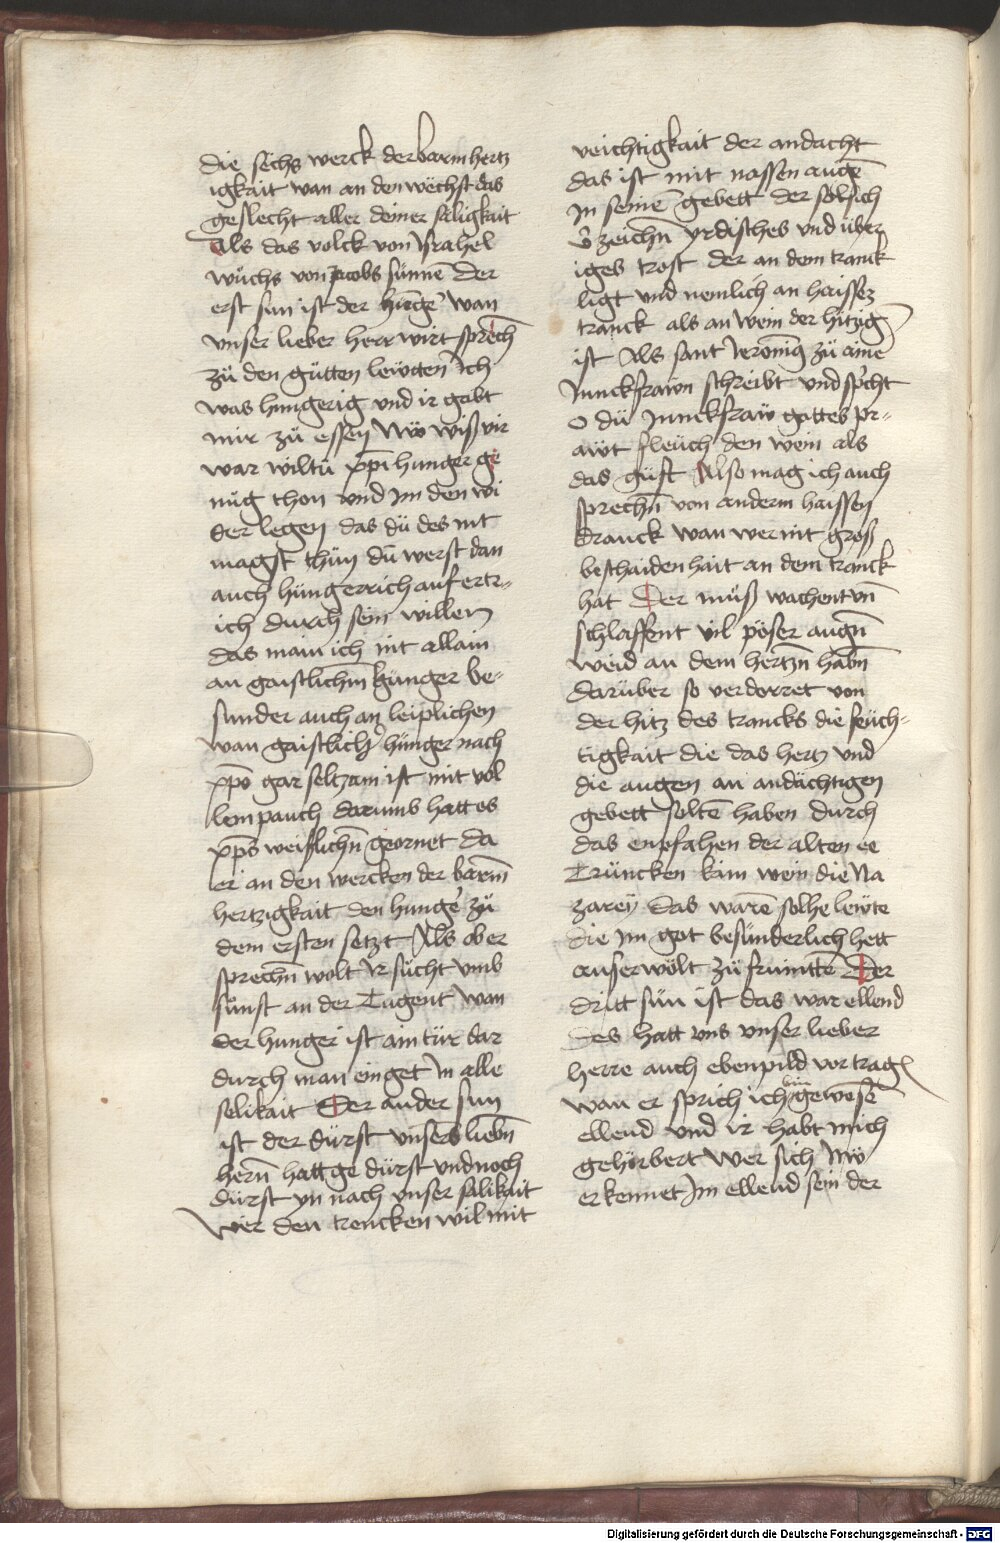 die sechs werck der barmhertz
igkait wan an den wechst das
geslecht aller deiner säligkait
Als das volck von Jsrahel
wuͦchs von Jacobs sünnē Der
erst sun ist der hūgeͬ wan
vnser lieber herr wirt sprechn̄
zuͦ den guͦtten lewten Ich
was hungerig vnd ir gabt
mir zuͦ essen Nw wiss wir
war wiltu xp̄i hunger ge
nuͦg thon vnd Jm den wi
der legen das du des nit
magst thuͦn du werst dan
auch hungerrich auf ertr-
ich durch sein willen
das main ich nit allain
an gaistlichm̄ hunger be-
sunder auch an leiplichen
wan gaistlicheͬ hunger nach
xp̄o gar seltzam ist mit vol
lem pauch darumb hatt es
xp̄s weislichn̄ geornet da
er an den wercken der barm̄
hertzigkait den hungeͬ zuͦ
dem ersten setzt Als ober
sprechn̄ wolt Ir suͦcht vmb
sunst an der Tugent wan
der hunger ist ain tür dar
durch man ein get Jn alle
selikait Der ander sun
ist der durst vnsers liebn̄
hern̄ hatt ge dürst vnd noch
dürst yn nach vnser sälikait
Wer den trencken wil mit
veichtigkait der andacht
das ist mit nassen augē
Jn seinē gebett der sol sich
v̄zeichn̄ yrdisches vnd über
iges trost der an dem tranck
ligt vnd nemlich an haissez
tranck als an wein der hitzig
ist Als sant Jeronimꝰ zuͦ aineͬ
Junckfrawn schreibt vnd sp̄cht
O du Junckfraw gottes pr-
awt fleuch den wein als
das gift Also mag ich auch
sprechn̄ von anderm haissen
dranck wan wer nit groß
beschaidenhait an dem tranck
hat Der muͦß wachent vn̄
schlaffent vil pöser augn̄
weid an dem hertzn̄ habn̄
darüber so verdorret von
der hitz des trancks die feuch-
tigkait die das hertz vnd
die augen an andächtigen
gebett soltē haben durch
das enpfahen der alten ee
Truncken kain wein die Na
zarey das warē solhe lewte
die im got besunderlich hett
auserwölt zuͦ frūnttē Der
dritt sun ist das war ellend
des hatt vns vnser lieber
herre auch ebenpild vor tragē
wan er sprich ich bin gewesē
ellend vnd ir habt mich
geherbert Wer sich nw
erkennet Jm ellend sein der
Digitalisierung gefördert durch die Deutsche Forschungsgemeinschaft - DFG